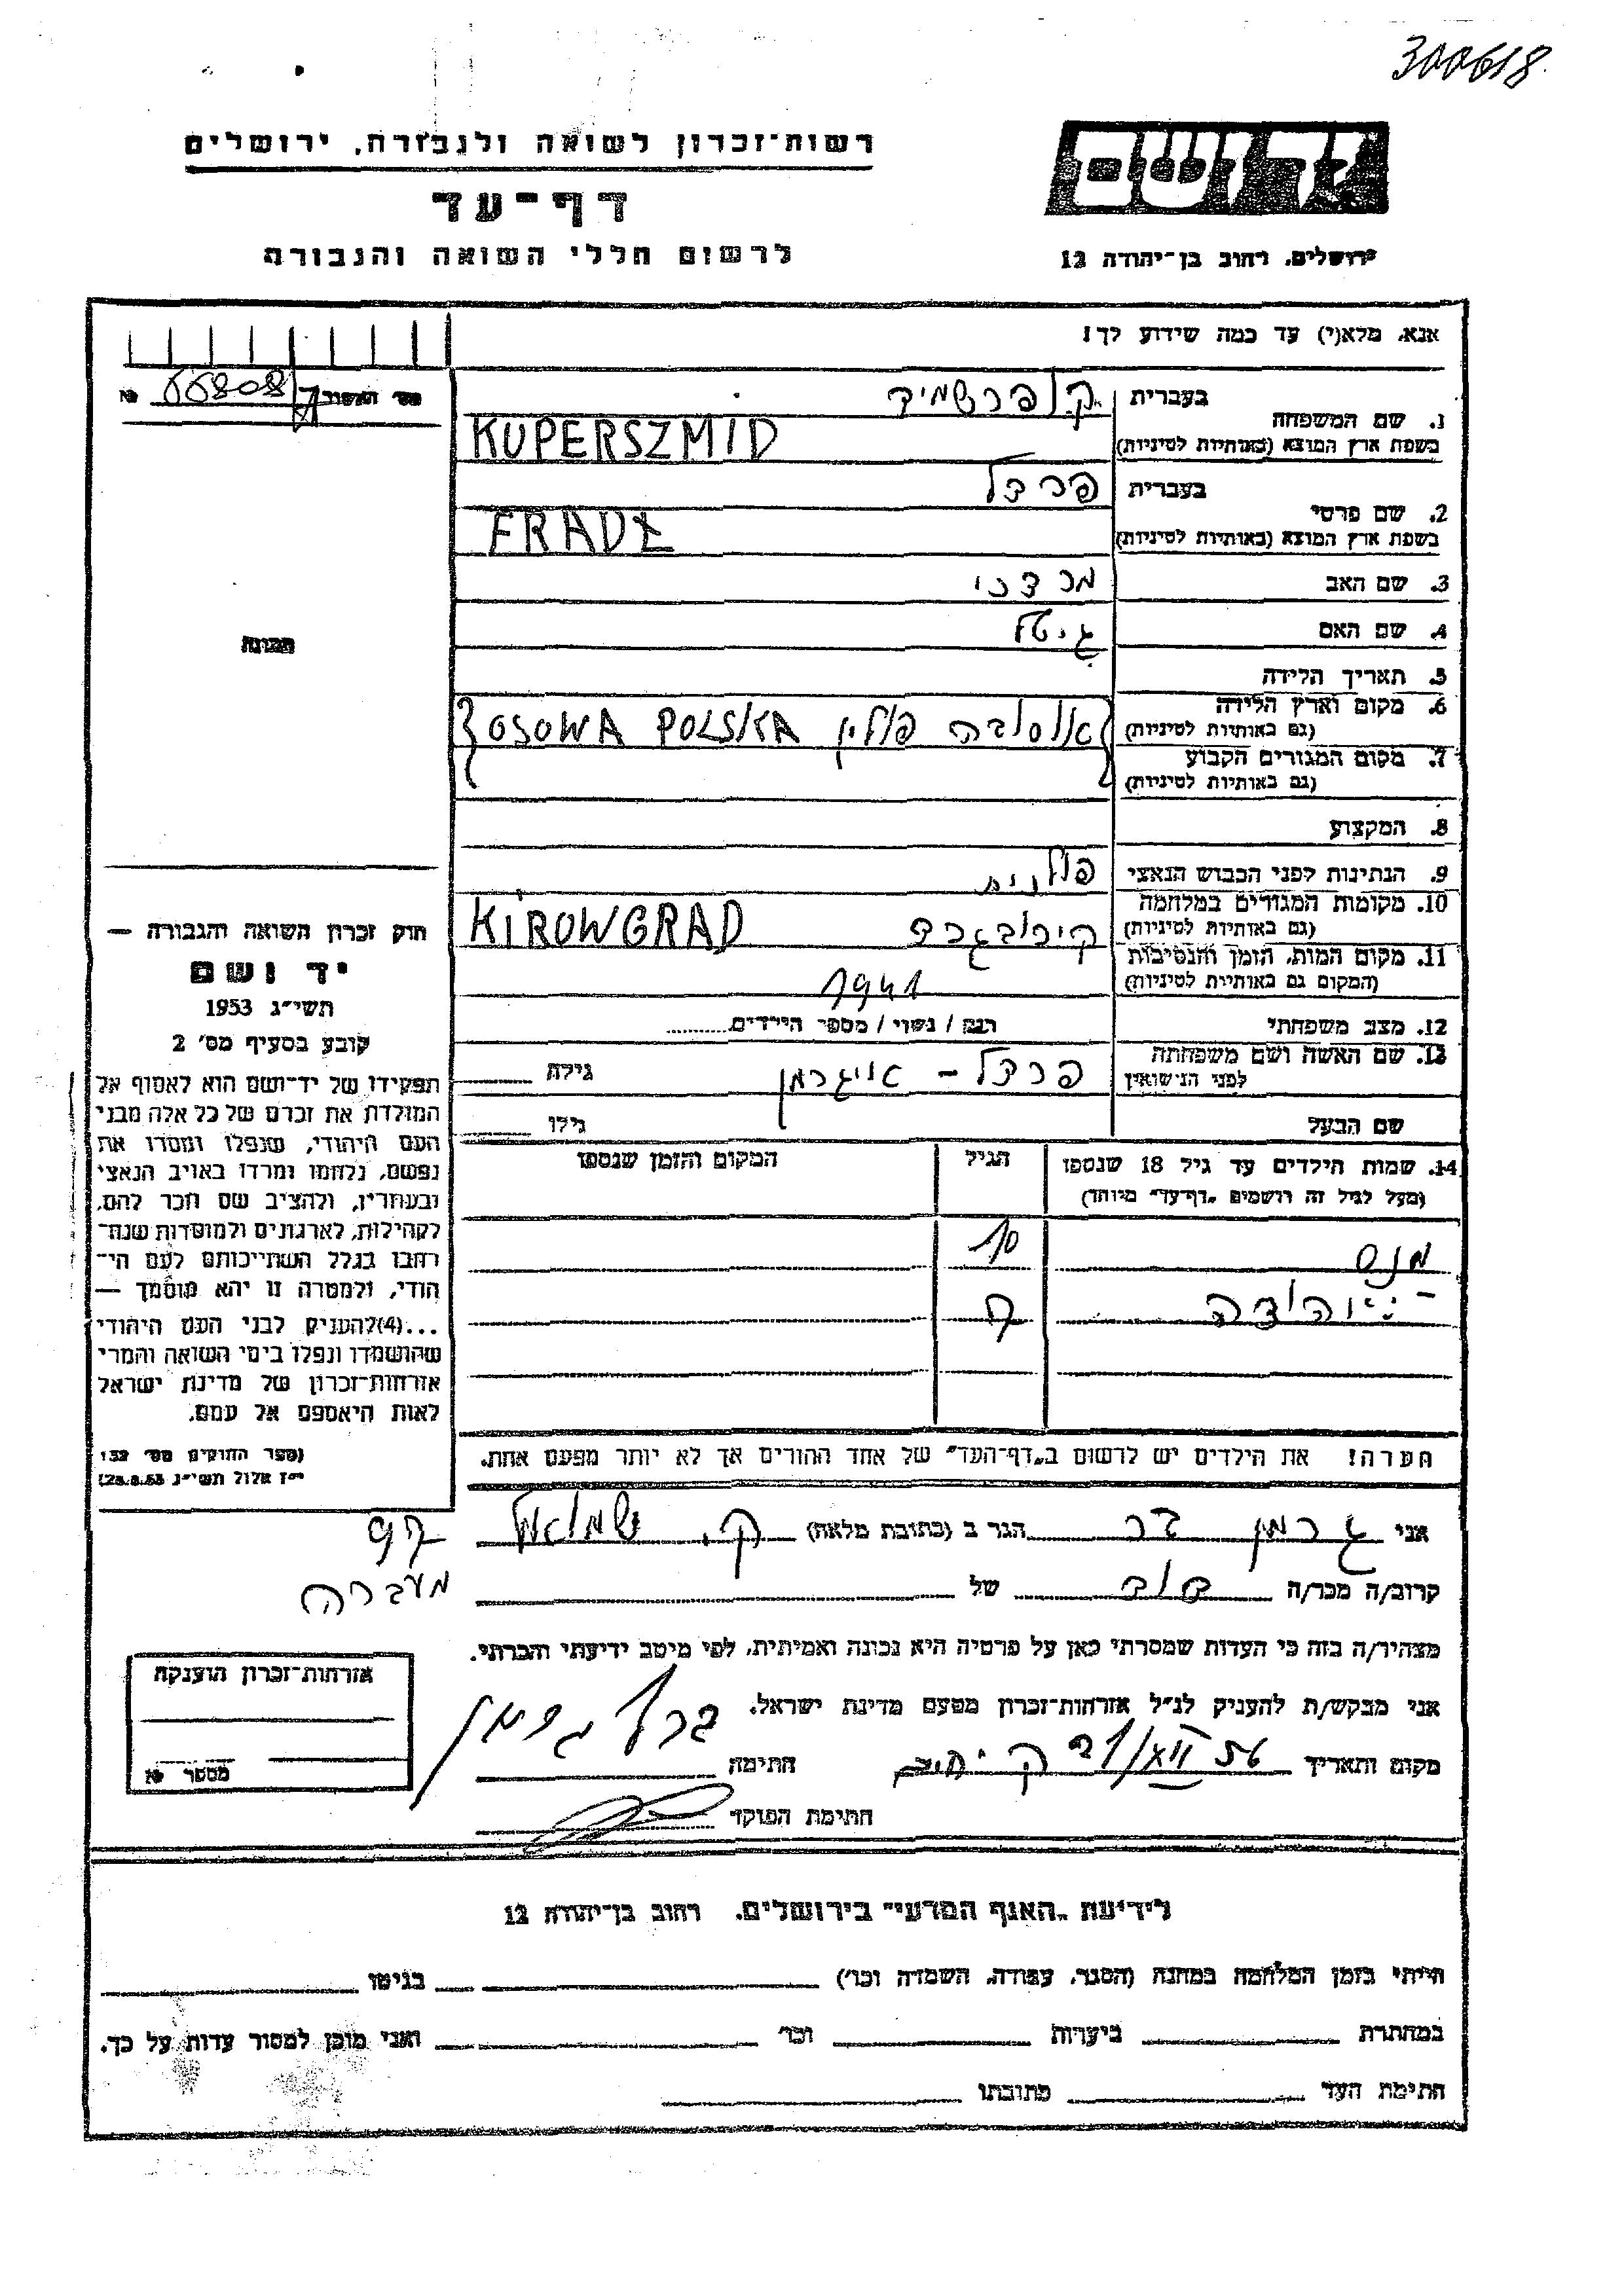 300618
רשות-זכרון לשואה ולגבורה, ירושלים
דף-עד
לרשום חללי השואה והגבורה
ידושם
ירושלים, רחוב בן-יהודה 12
אנא, מלא(י) עד כמה שידוע לך!
מס' האשור 66808 №
1. שם המשפחה בעברית קופרשמיד
בשפת ארץ המוצא (באותיות לטיניות) KUPERSZMID
2. שם פרטי בעברית פרדל
בשפת ארץ המוצא (באותיות לטיניות)
3. שם האב מרדכי
4. שם האם גיטל
5. תאריך הלידה
6. מקום וארץ הלידה
(גם באותיות לטיניות) אוסובה פולין OSOWA POLSKA
7. מקום המגורים הקבוע
(גם באותיות לטיניות)
8. המקצוע
9. הנתינות לפני הכבוש הנאצי פולנית
10. מקומות המגורים במלחמה
(גם באותיות לטיניות) קירובגרד KIROWGRAD
11. מקום המות, הזמן והנסיבות
(המקום גם באותיות לטיניות) 1941
12. מצב משפחתי רוק / נשוי / מספר הילדים
13. שם האשה ושם משפחתה
לפני הנישואין פרדל - אויגרמן גילה
שם הבעל גילו
14. שמות הילדים עד גיל 18 שנספו הגיל המקום והזמן שנספו
(מעל לגיל זה רושמים "דף-עד" מיוחד)
מנס 10
יהודה
הערה! את הילדים יש לרשום ב"דף-העד" של אחד ההורים אך לא יותר מפעם אחת.
תמונה
חוק זכרון השואה והגבורה —
יד ושם
תשי"ג 1953
קובע בסעיף מס' 2
תפקידו של יד-ושם הוא לאסוף אל
המולדת את זכרם של כל אלה מבני
העם היהודי, שנפלו ומסרו את
נפשם, נלחמו ומרדו באויב הנאצי
ובעוזריו, ולהציב שם וזכר להם,
לקהילות, לארגונים ולמוסדות שנח-
רבו בגלל השתייכותם לעם הי-
הודי, ולמטרה זו יהא מוסמך —
...(4)להעניק לבני העם היהודי
שהושמדו ונפלו בימי השואה והמרי
אזרחות-זכרון של מדינת ישראל
לאות היאספם אל עמם.
(ספר החוקים מס' 132
י"ז אלול תשי"ג 28.8.53)
אני גרמן הגר ב (כתובת מלאה) ק. שמואל
מעברה
קרוב/ה מכר/ה דוד של
מצהיר/ה בזה כי העדות שמסרתי כאן על פרטיה היא נכונה ואמיתית, לפי מיטב ידיעתי והכרתי.
אני מבקש/ת להעניק לנ"ל אזרחות-זכרון מטעם מדינת ישראל.
מקום ותאריך חתימה
חתימת הפוקד
אזרחות-זכרון הוענקה
מספר №
לידיעת "האגף המדעי" בירושלים, רחוב בן-יהודה 12
הייתי בזמן המלחמה במחנה (הסגר, עבודה, השמדה וכו') בגיטו
במחתרת ביערות וכו' ואני מוכן למסור עדות על כך.
חתימת העד כתובתו